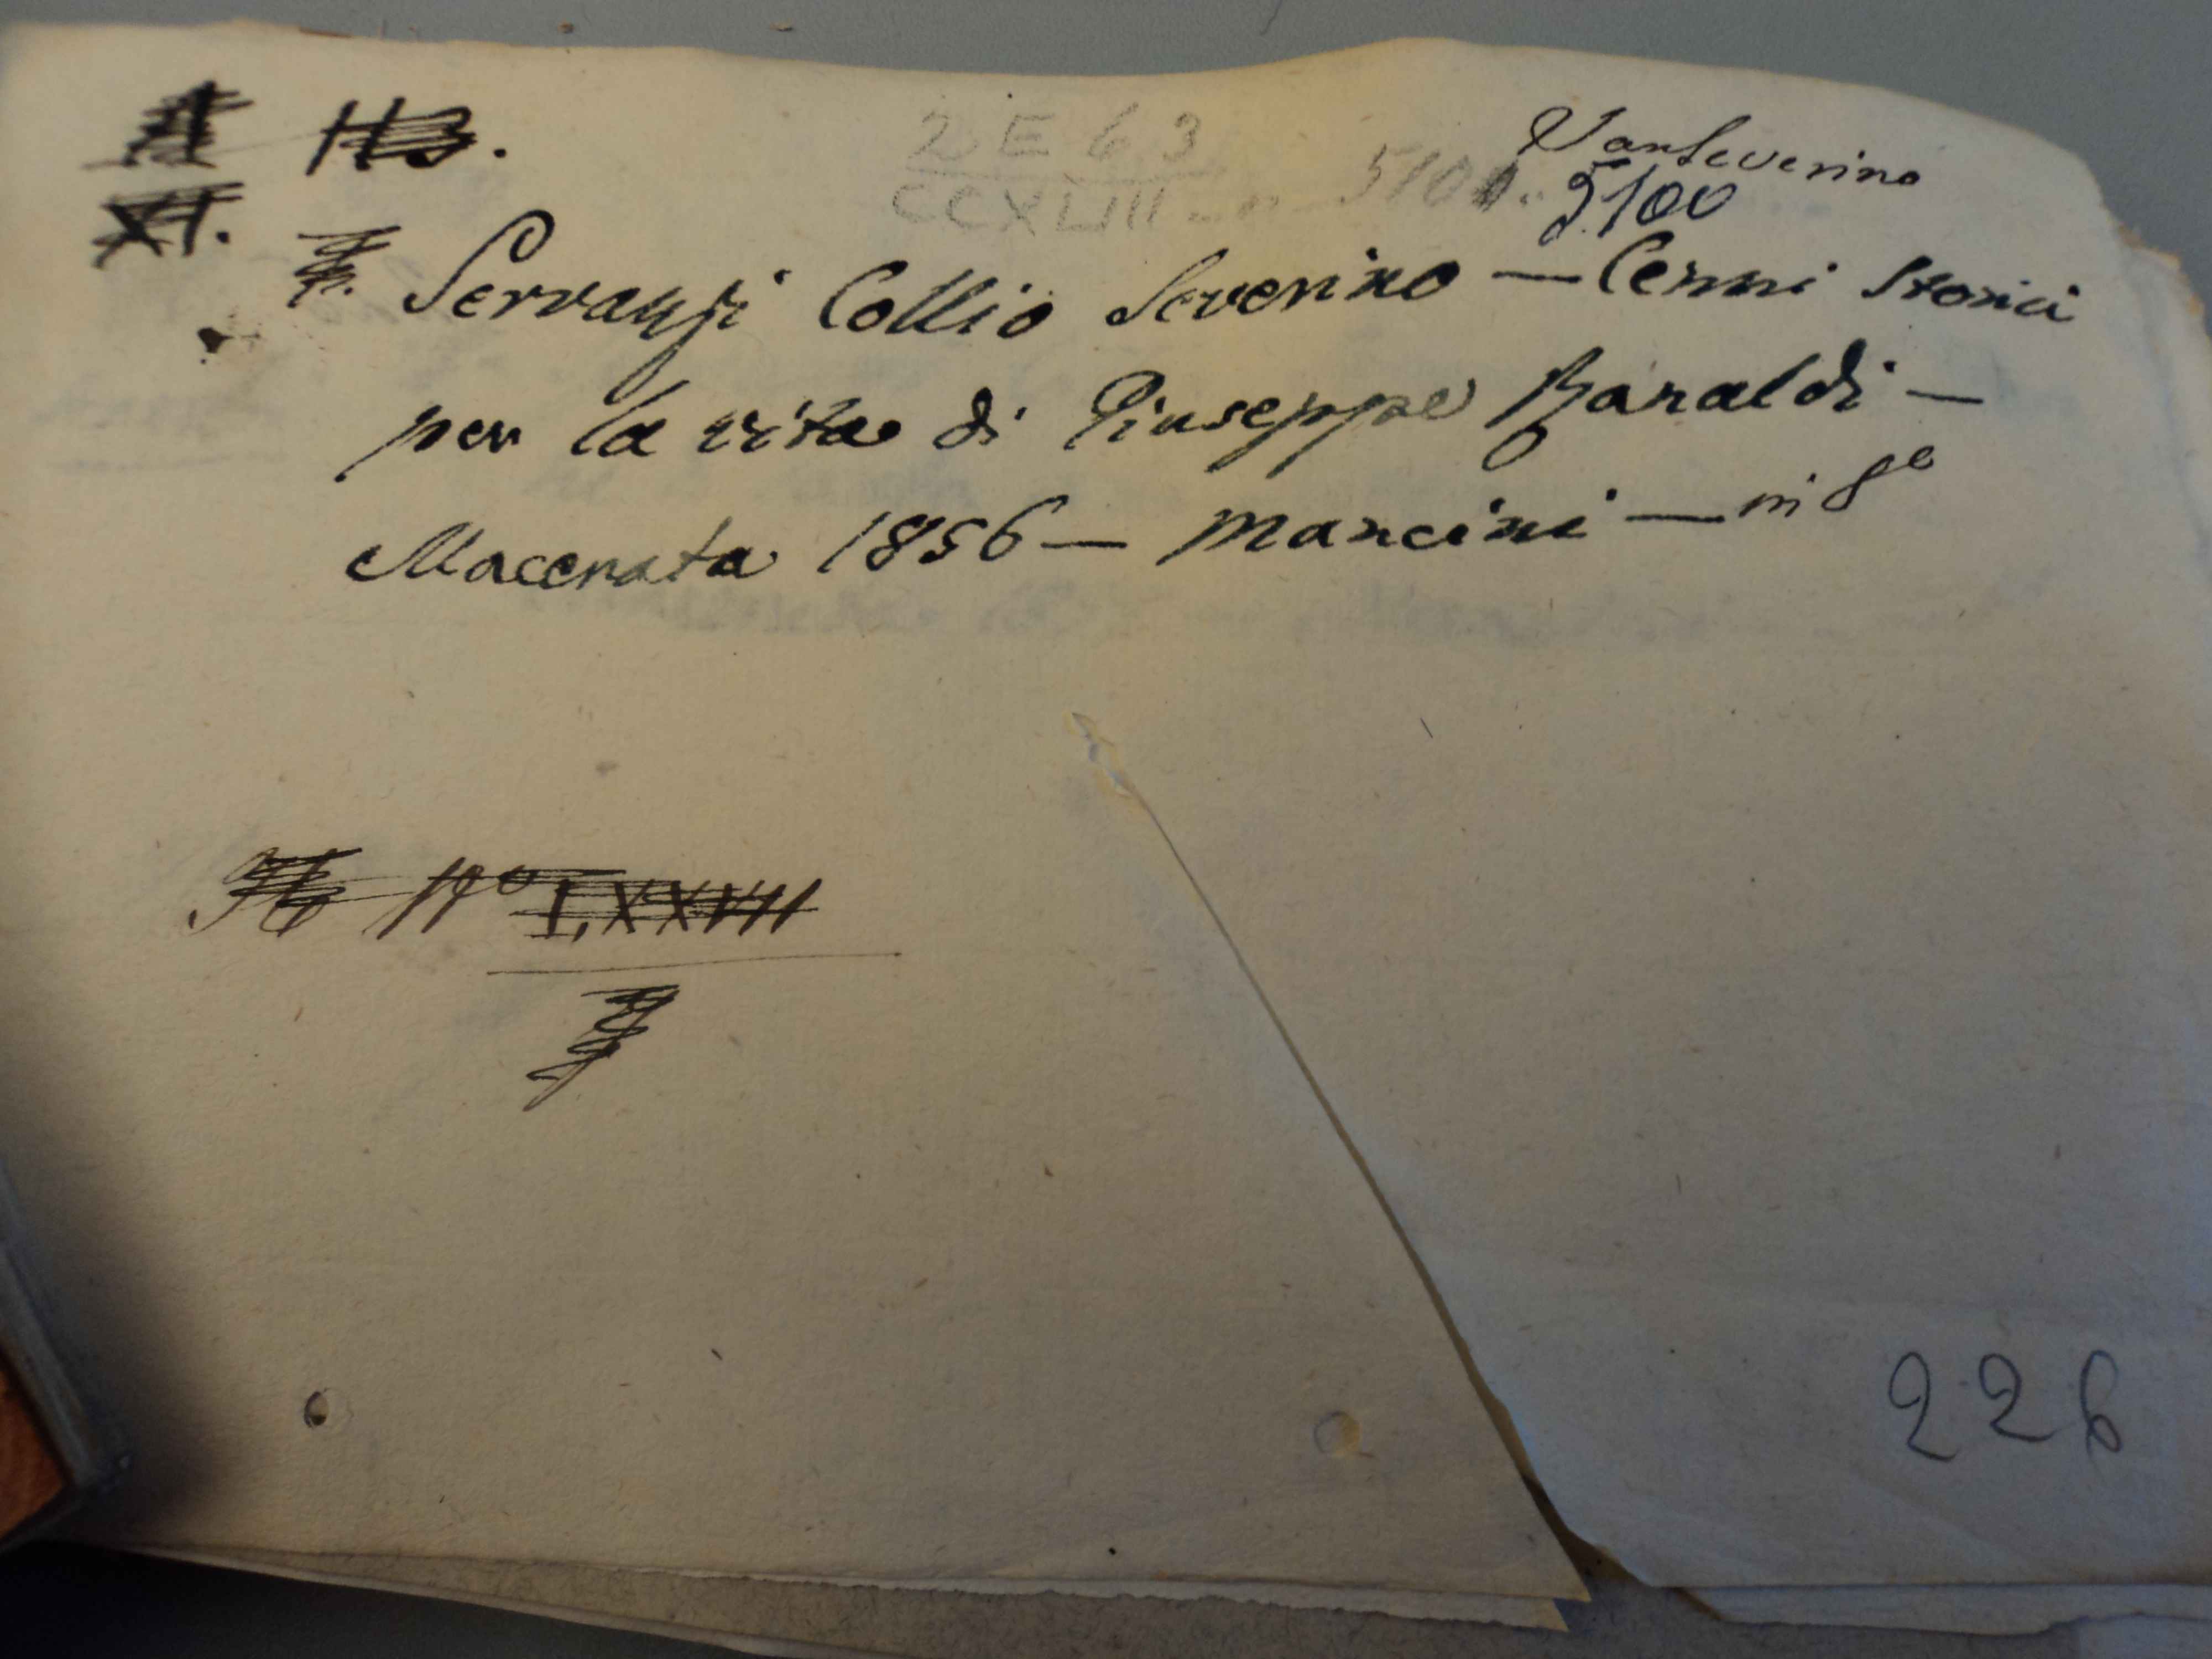 A 113.
2 E 63
CCXLIII - n - 5100.
Sanseverino
5100
XI.
Servanzi Collio Severino — Cenni Storici
per la vita di Giuseppe Baraldi —
Macerata 1856 — Mancini — in 8º
Nº LXXVII
226